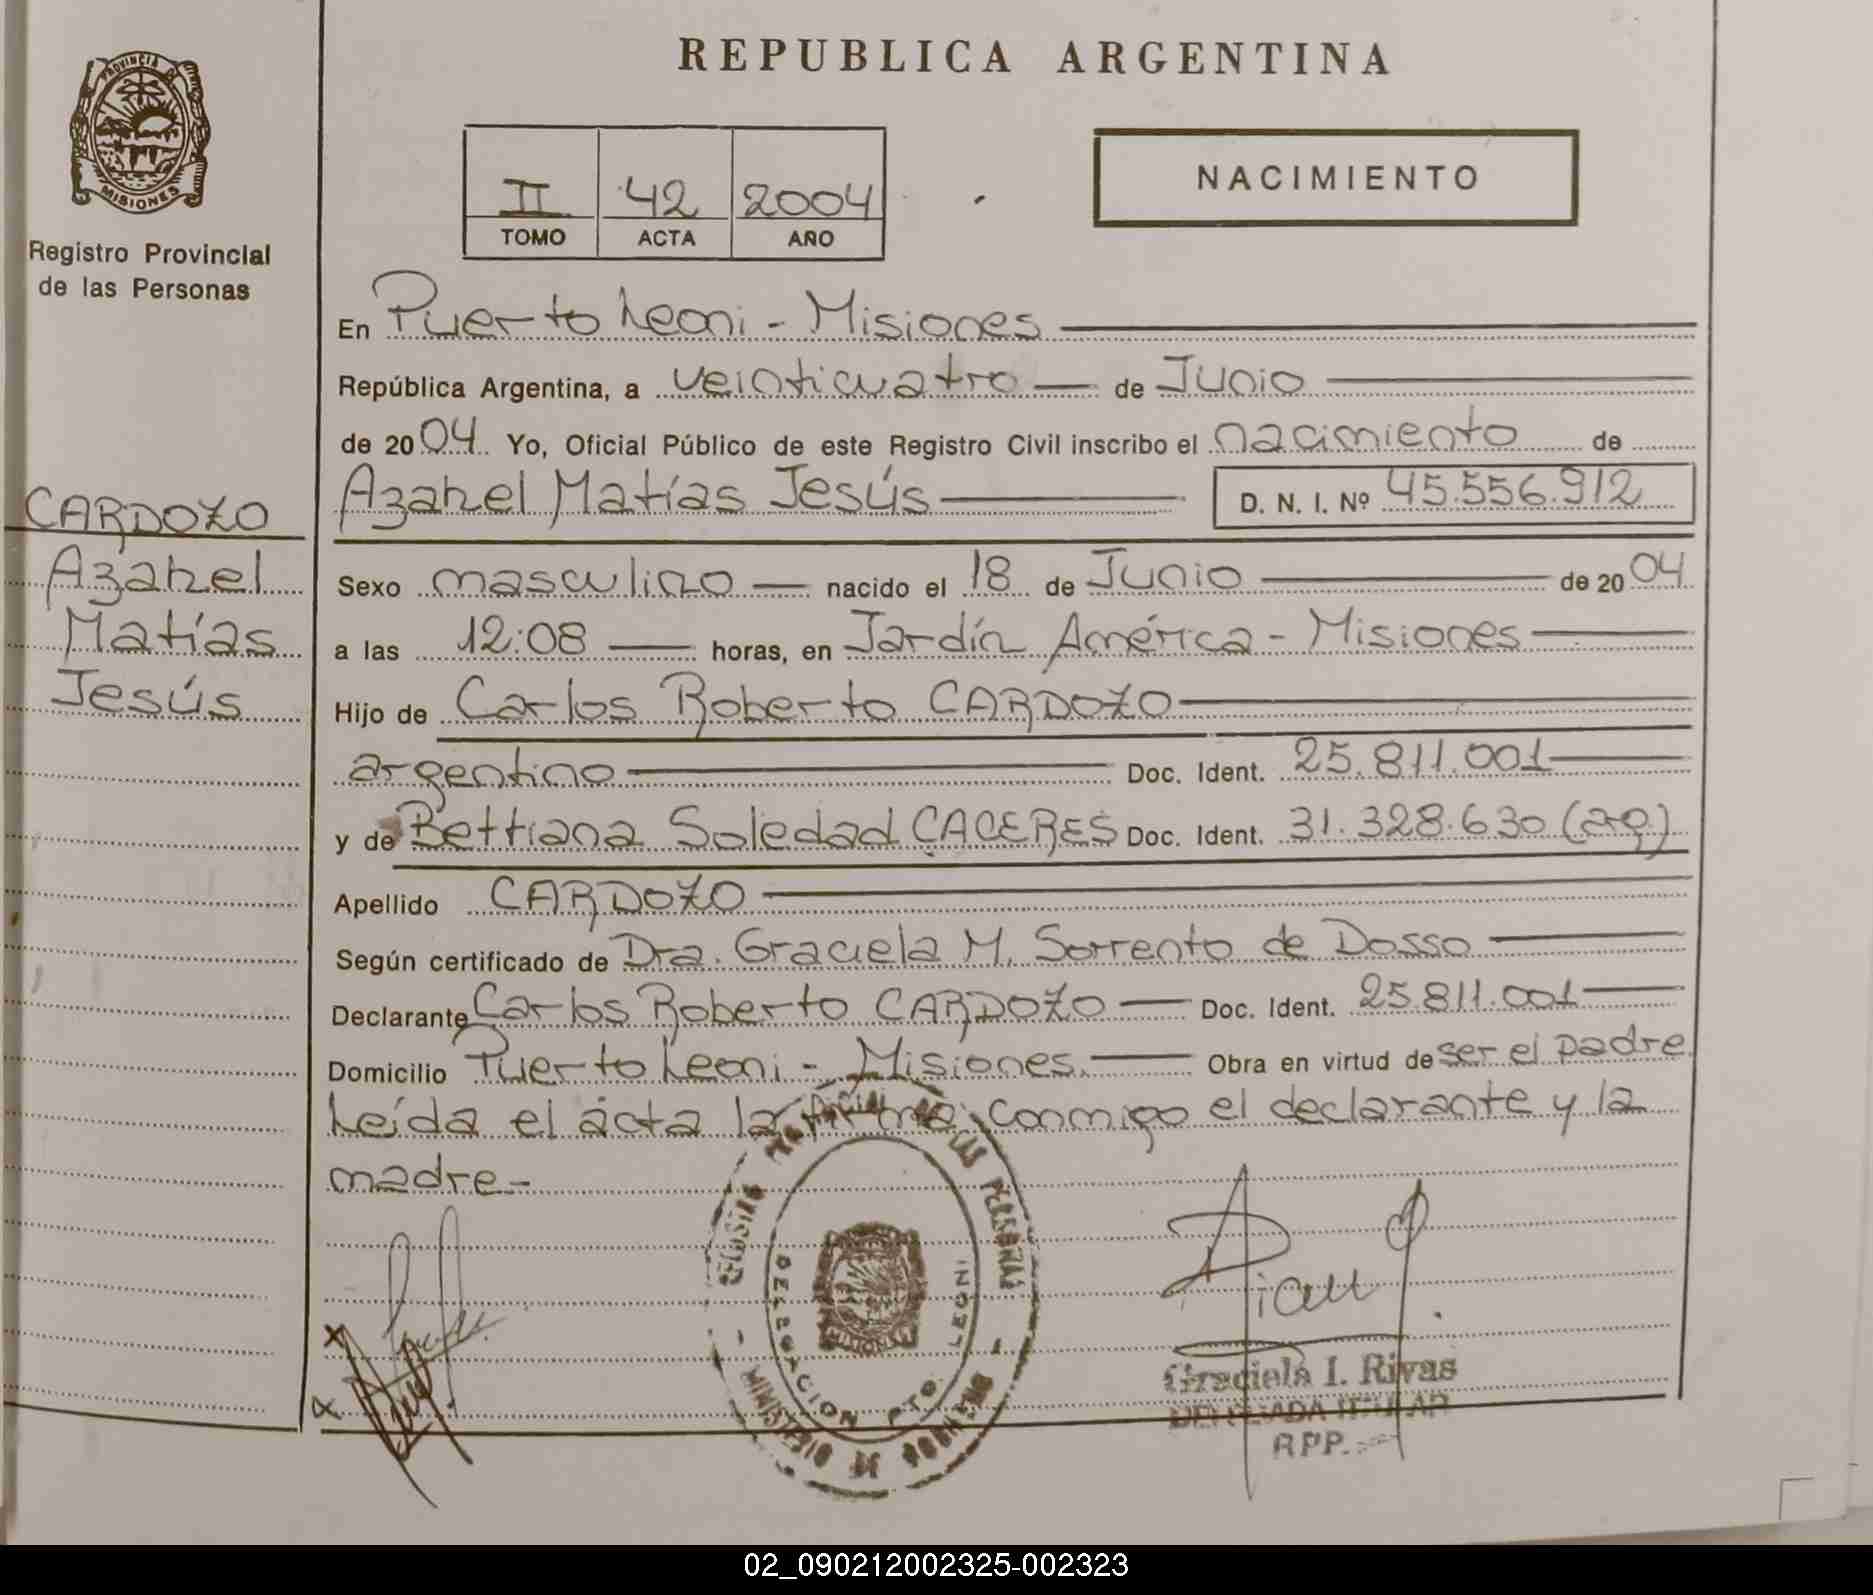 PROVINCIA DE
MISIONES
Registro Provincial
de las Personas
CARDOZO
Azahel
Matías
Jesús
REPUBLICA ARGENTINA
II 42 2004
TOMO ACTA AÑO
NACIMIENTO
En Puerto Leoni - Misiones
República Argentina, a veinticuatro de Junio
de 2004 Yo, Oficial Público de este Registro Civil inscribo el nacimiento de
Azahel Matías Jesús D. N. I. Nº 45.556.912
Sexo masculino nacido el 18 de Junio de 2004
a las 12:08 horas, en Jardín América - Misiones
Hijo de Carlos Roberto CARDOZO
argentino Doc. Ident. 25.811.001
y de Bettiana Soledad CACERES Doc. Ident. 31.328.630 (arg)
Apellido CARDOZO
Según certificado de Dra. Graciela M. Sorrento de Dosso
Declarante Carlos Roberto CARDOZO Doc. Ident. 25.811.001
Domicilio Puerto Leoni - Misiones. Obra en virtud de ser el padre.
Leída el acta la firma conmigo el declarante y la
madre -
DE LAS PERSONAS
DELEGACION PTO. LEONI
MINISTERIO DE GOBIERNO
MISIONES
Graciela I. Rivas
DELEGADA TITULAR
RPP.
02_090212002325-002323